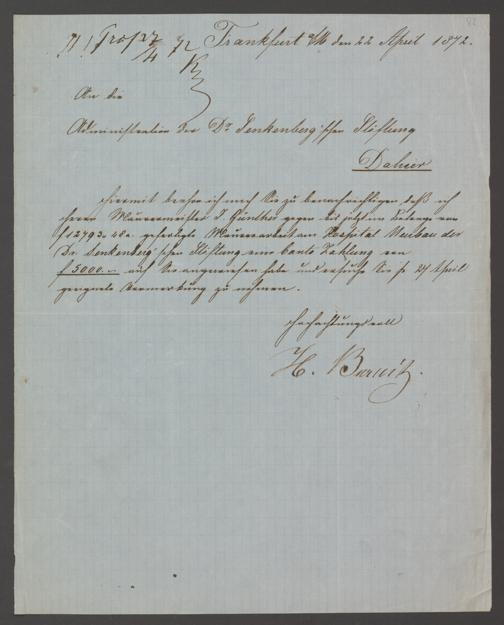 Frankfurt a/M den 22 April 1872.
An die
Administration der Dr Senkenberg'schen Stiftung
Dahier
Hiermit beehre ich mich Sie zu benachrichtigen daß ich
Herrn Maurermeister J. Günther gegen bis jetzt im Betrage von
f 12793. 48 x. gefertigte Maurerarbeit am Hospital Neubau der
Dr. Senkenberg'schen Stiftung eine baare Zahlung von
f 5000.— auf Sie angewiesen habe und ersuche Sie pr 24 April
geeignete Vormerkung zu nehmen.
Hochachtungsvoll
H. Burnitz.